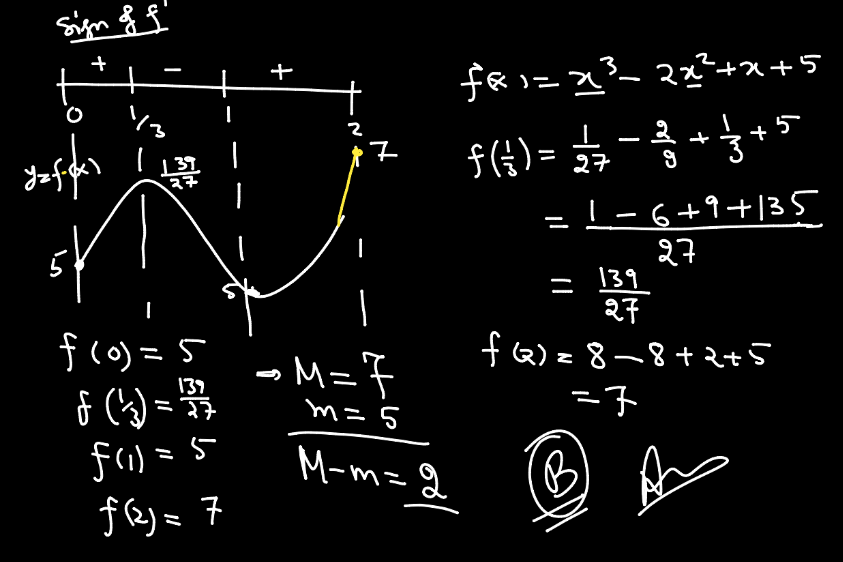 sign of f'
+ - +
0 1/3 1 2
y=f(x)
139/27
7
5
5
f(0) = 5
f(1/3) = 139/27
f(1) = 5
f(2) = 7
→ M = 7
m = 5
M-m = 2
f(x) = x³ - 2x² + x + 5
f(1/3) = 1/27 - 2/9 + 1/3 + 5
= 1 - 6 + 9 + 135 / 27
= 139/27
f(2) = 8 - 8 + 2 + 5
= 7
B